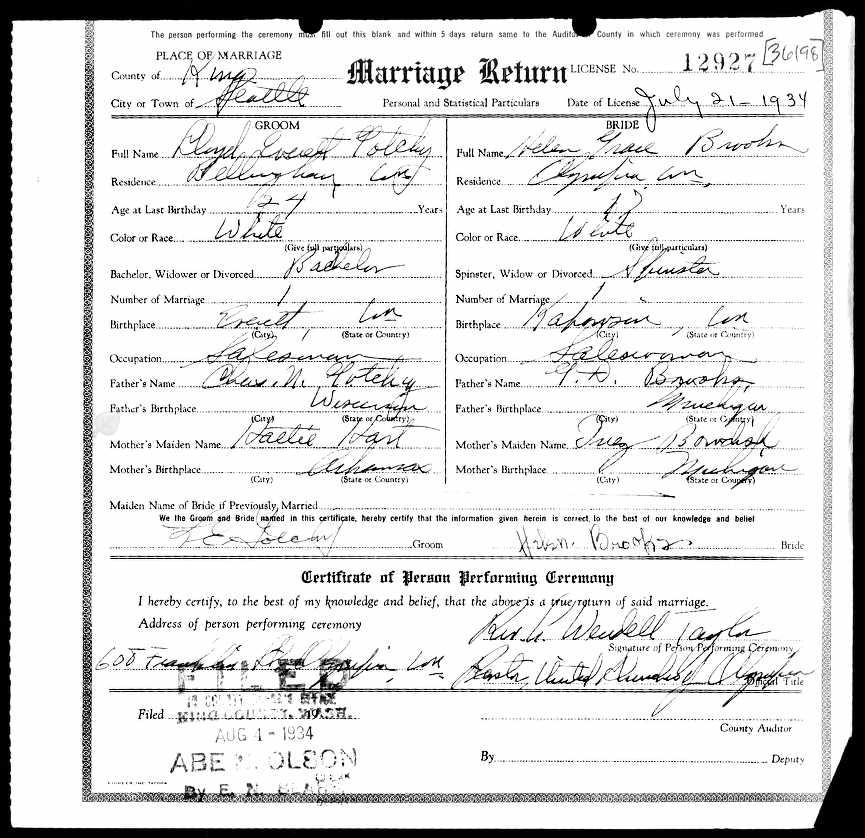 The person performing the ceremony must fill out this blank and within 5 days return same to the Auditor of County in which ceremony was performed
PLACE OF MARRIAGE
County of King
City or Town of Seattle
Marriage Return
Personal and Statistical Particulars
LICENSE No. 12927 [36198]
Date of License July 21 - 1934
GROOM
Full Name Lloyd Everett
Residence Bellingham, Wn
Age at Last Birthday 24 Years
Color or Race White
(Give full particulars)
Bachelor, Widower or Divorced Bachelor
Number of Marriage 1
Birthplace Everett, Wn
(City) (State or Country)
Occupation Salesman
Father's Name Chas. N.
Father's Birthplace Wisconsin
(City) (State or Country)
Mother's Maiden Name Hattie Hart
Mother's Birthplace Arkansas
(City) (State or Country)
BRIDE
Full Name Helen Grace Brooks
Residence Olympia, Wn,
Age at Last Birthday Years
Color or Race White
(Give full particulars)
Spinster, Widow or Divorced Spinster
Number of Marriage 1
Birthplace Kapowsin, Wn
(City) (State or Country)
Occupation Saleswoman
Father's Name Brooks
Father's Birthplace Michigan
(City) (State or Country)
Mother's Maiden Name Inez
Mother's Birthplace Michigan
(City) (State or Country)
Maiden Name of Bride if Previously Married
We the Groom and Bride named in this certificate, hereby certify that the information given herein is correct, to the best of our knowledge and belief
Groom
Helen Brooks Bride
Certificate of Person Performing Ceremony
I hereby certify, to the best of my knowledge and belief, that the above is a true return of said marriage.
Address of person performing ceremony
Rev. C. Wendell Taylor
Signature of Person Performing Ceremony
608 Franklin Olympia, Wn
Pastor, United Churches, Olympia
Official Title
FILED
Filed KING COUNTY, WASH.
AUG 4 - 1934
ABE N. OLSON
By E. N.
County Auditor
By Deputy